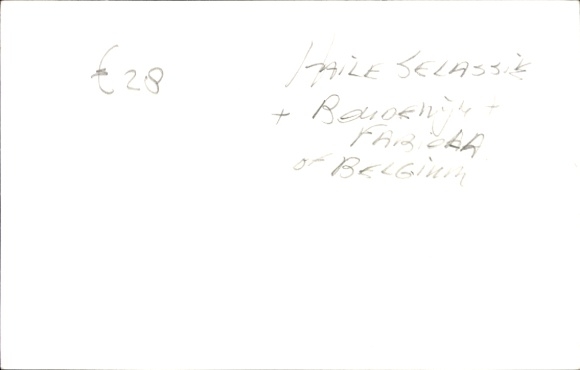 €28
HAILE SELASSIE
+ BOUDEWIJN +
FABIOLA
of BELGIUM